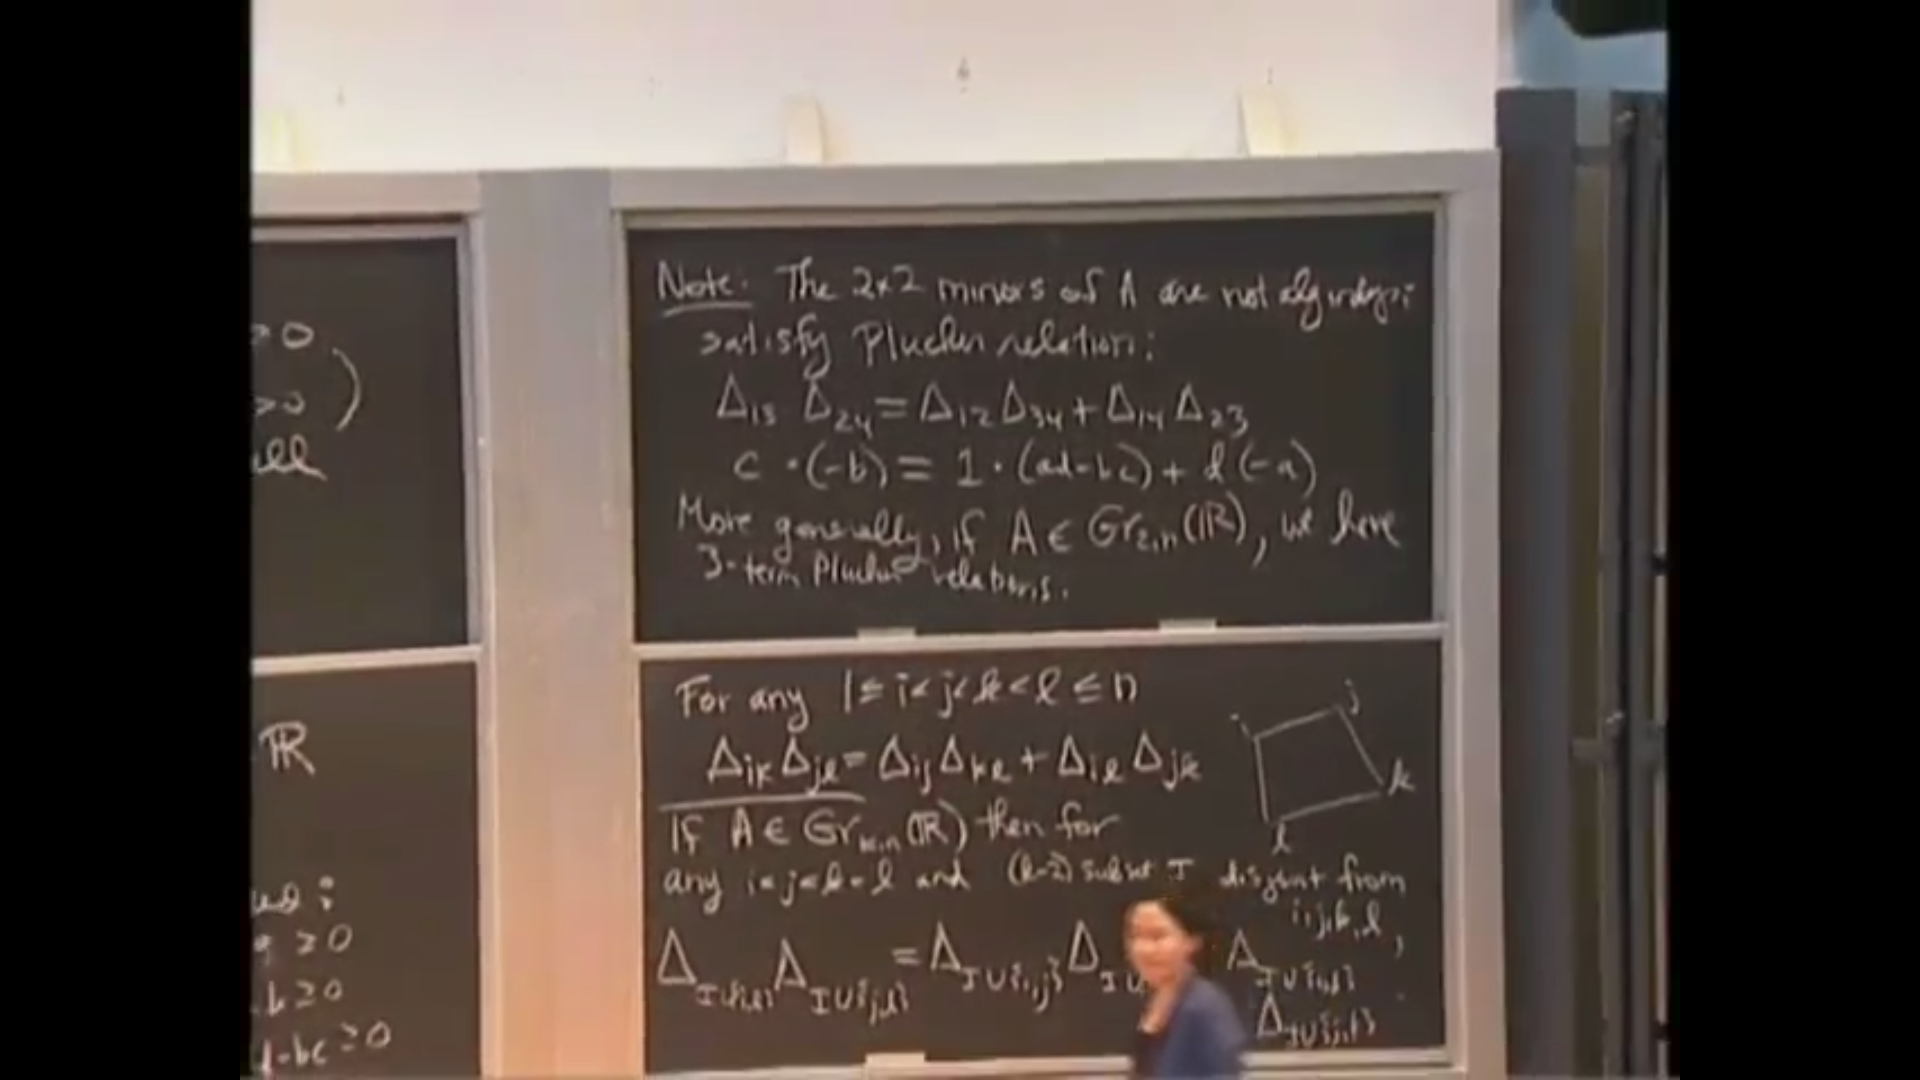 ≥0
>0 )
all
ℝ
≥0
b ≥0
d-bc ≥0
Note: The 2x2 minors of A are not alg indep;
satisfy Plucker relation:
Δ₁₃ Δ₂₄ = Δ₁₂ Δ₃₄ + Δ₁₄ Δ₂₃
c · (-b) = 1 · (ad-bc) + d(-a)
More generally, if A ∈ Gr₂,ₙ(ℝ), we have
3-term Plucker relations.
For any 1 ≤ i < j < k < l ≤ n
Δ_{ik} Δ_{jl} = Δ_{ij} Δ_{kl} + Δ_{il} Δ_{jk}
i
j
k
l
If A ∈ Gr_{k,n}(ℝ) then for
any i<j<k<l and (k-2) subset I disjoint from
i,j,k,l,
Δ_{I∪{i,k}} Δ_{I∪{j,l}} = Δ_{I∪{i,j}} Δ_{I∪ Δ_{I∪{i,l}}
Δ_{I∪{j,k}}